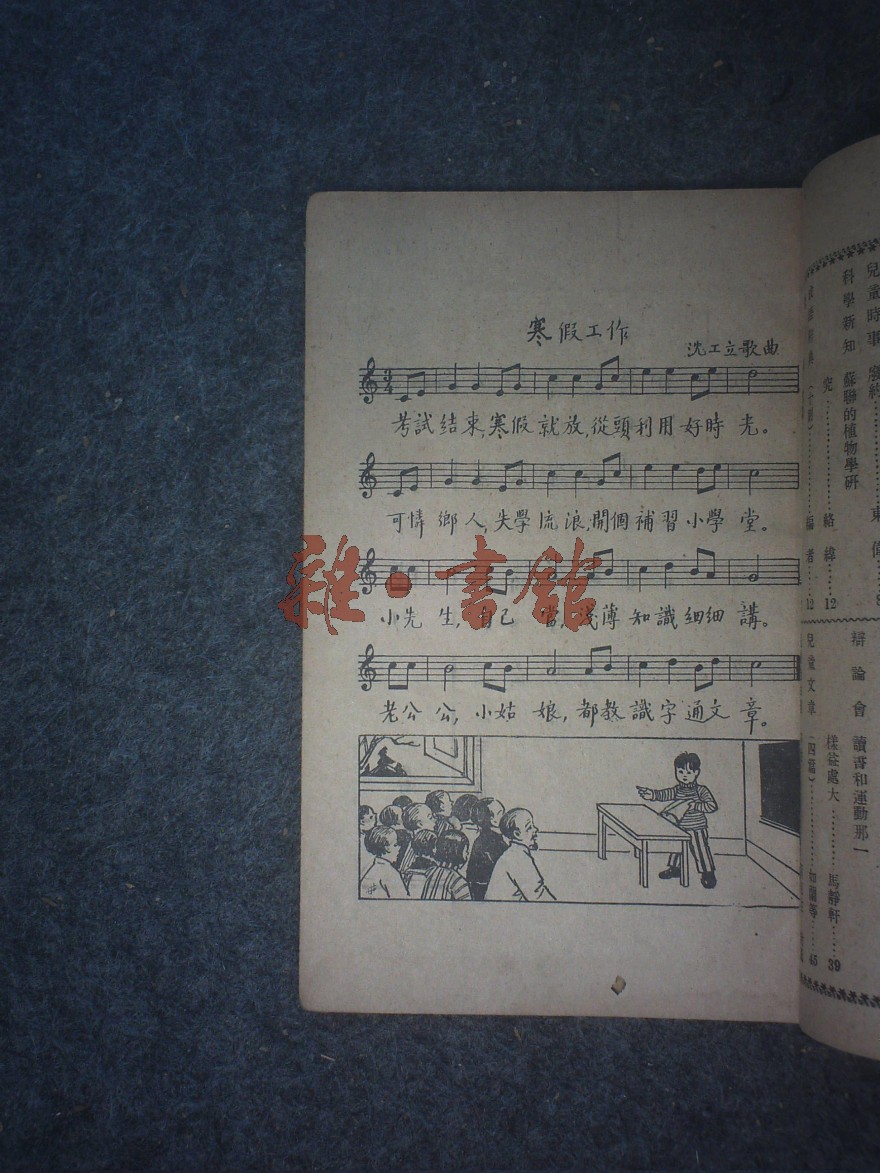 寒假工作
沈工立歌曲
3
4
考試結束,寒假就放,從頭利用好時光。
可憐鄉人,失學流浪,開個補習小學堂。
小先生,自己當,淺薄知識細細講。
老公公,小姑娘,都教識字通文章。
雜·書館
兒童時事
科學新知 蘇聯的植物學研
究 絡緯 12
12
辯論會 讀書和運動那一
樣益處大 馬靜軒 39
兒童文章(四篇) 45